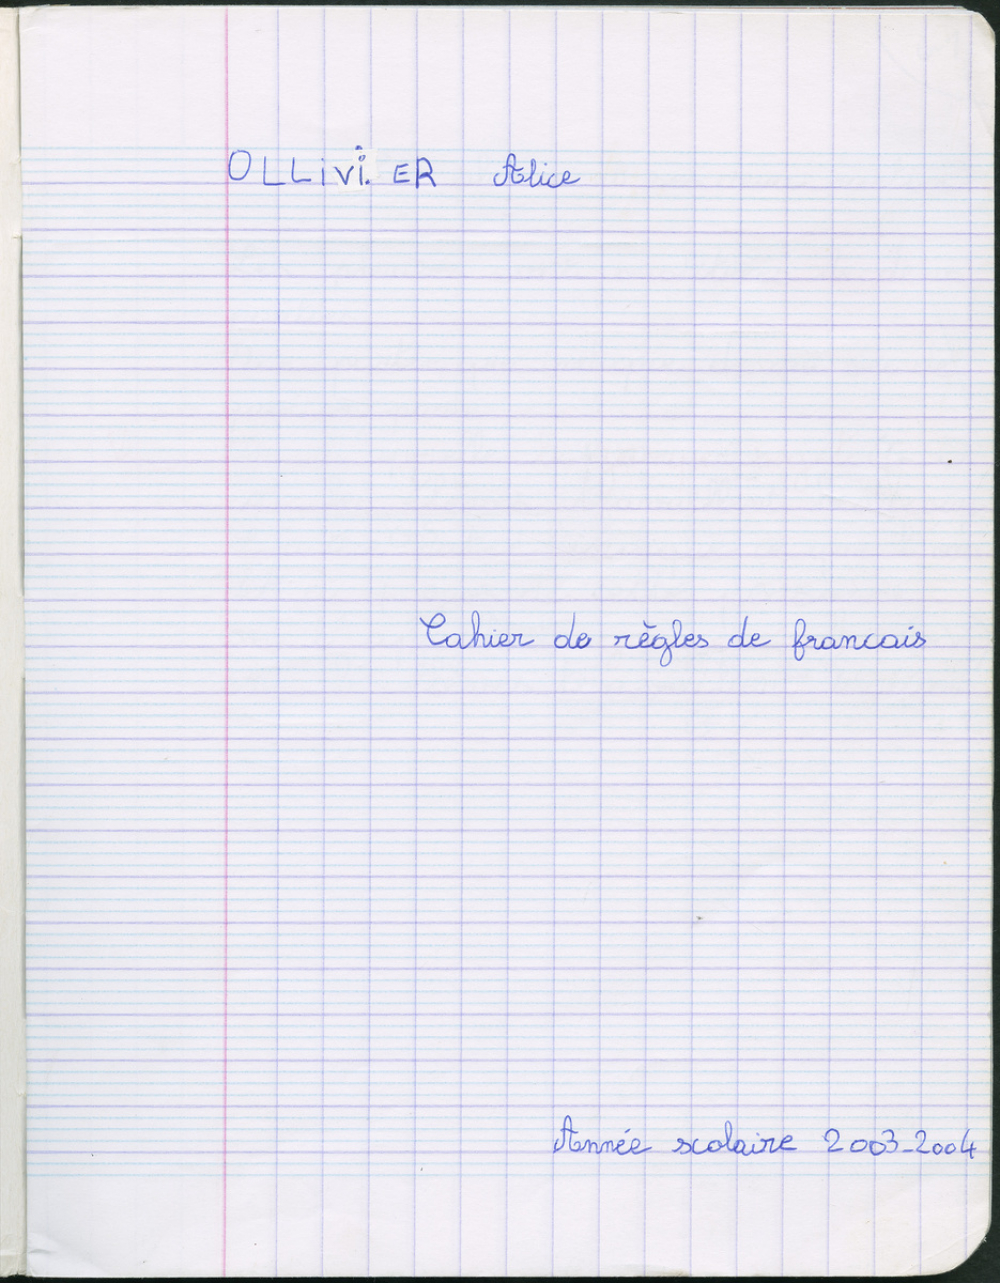 OLLiVi.ER Alice
Cahier de règles de francais
Année scolaire 2003-2004